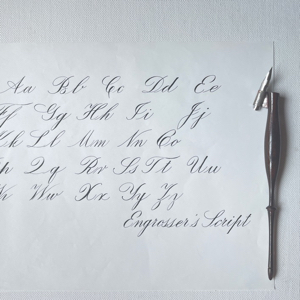 Aa Bb Cc Dd Ee
Ff Gg Hh Ii Jj
Kk Ll Mm Nn Oo
Ph Qq Rr Ss Tt Uu
Vv Ww Xx Yy Zz
Engrosser's Script